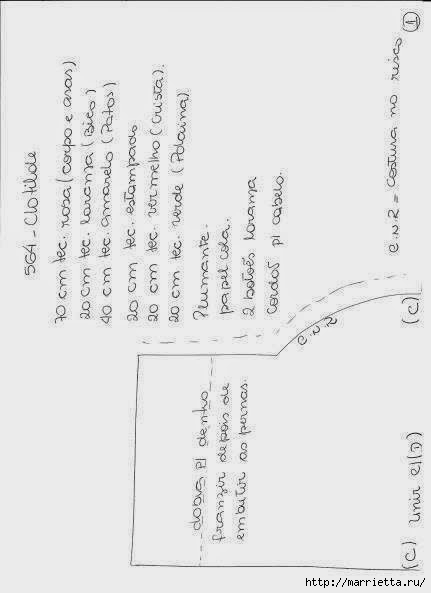 564 - Clotilde
70 cm tec. rosa (corpo e asas)
20 cm tec. laranja (Bico)
40 cm tec. amarelo (Patas)
20 cm tec. estampado
20 cm tec. vermelho (Crista).
20 cm tec. verde (Polaina).
Plumante.
papel cola.
2 botões laranja
Cordão p/ cabelo.
C.N.R = Costura no risco
1
C.N.R
dobra p/ dentro
franzir depois de
embutir as pernas.
(C)
(C) unir c/(D)
http://marrietta.ru/